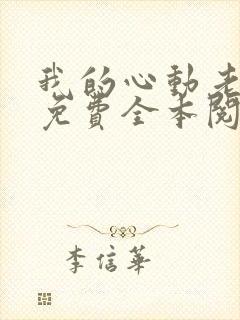 我的心動老
免費全本閱
李信華